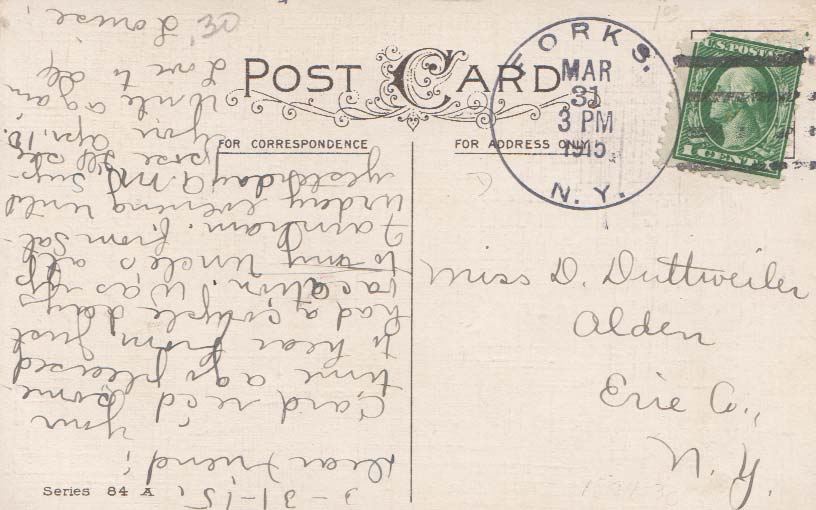 POST CARD
FOR CORRESPONDENCE
FOR ADDRESS ONLY
FORKS.
MAR
31
3 PM
1915
N.Y.
U.S. POSTAGE
1 CENT 1
Miss D. Duttweiler
Alden
Erie Co.,
N.Y.
3-31-15.
Dear Friend;
Your
Card rec'd some
time ago pleased
to hear from. Just
had a couple days
vacation. Was up
to my Uncle's at
Farnham. from Sat-
urday evening until
yesterday A.M. Sup-
pose I'll see
you Apr. 10.
Write again
Love to
Louise,
Series 84 A